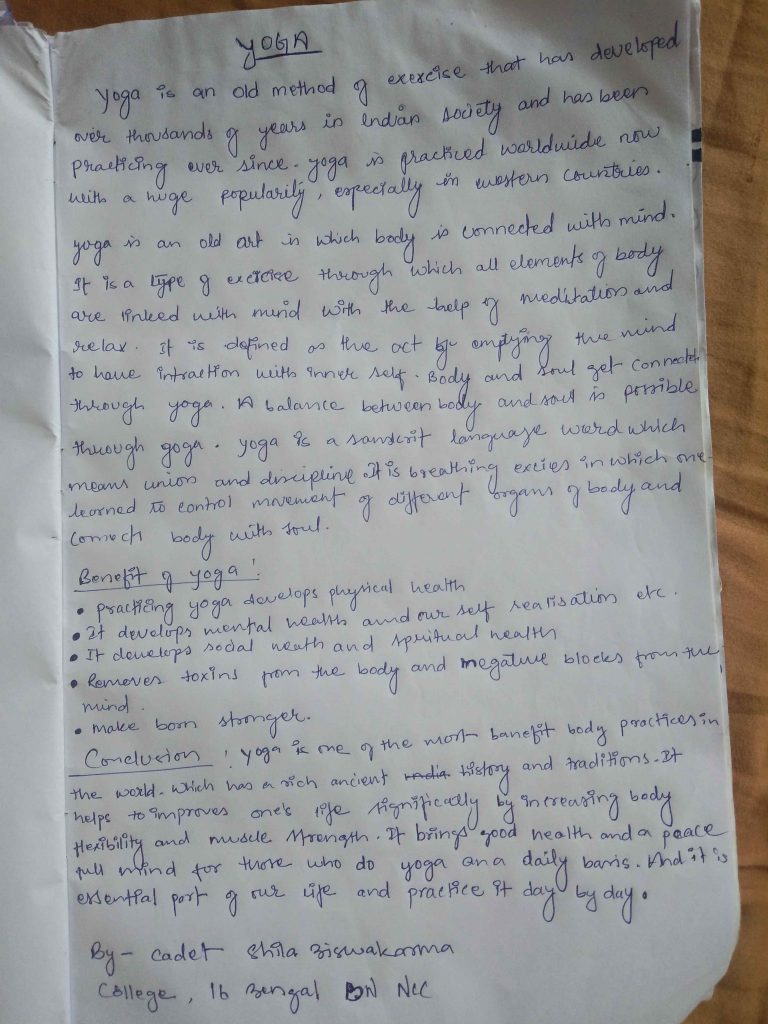 YOGA
Yoga is an old method of exercise that has developed
over thousands of years in Indian society and has been
practicing ever since. yoga is practiced worldwide now
with a huge popularity, especially in western countries.
yoga is an old art in which body is connected with mind.
It is a type of exercise through which all elements of body
are linked with mind with the help of meditation and
relax. It is defined as the act by emptying the mind
to have intraction with inner self. Body and soul get connected
through yoga. A balance between body and soul is possible
through goga. yoga is a sanscrit language word which
means union and discipline. It is breathing excies in which one
learned to control movement of different organs of body and
connect body with soul.
Benefit of yoga!
• practicing yoga develops physical health
• It develops mental health and our self realisation etc.
• It develops social heath and spritual health
• Removes toxins from the body and negative blocks from the
mind.
• make born stronger.
Conclusion ! yoga is one of the most banefit body practices in
the world. which has a rich ancient history and traditions. It
helps to improves one's life significantly by increasing body
flexibility and muscle strength. It brings good health and a peace
full mind for those who do yoga on a daily barris. And it is
essential part of our life and practice it day by day.
By - cadet Shila Biswakarma
College, 16 Bengal BN NCC